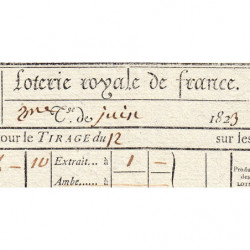 Loterie royale de france.
2me T.ge de juin 1823
our le TIRAGE du 12 sur les
10 Extrait... à 1 -
Ambe.... à Produ
des